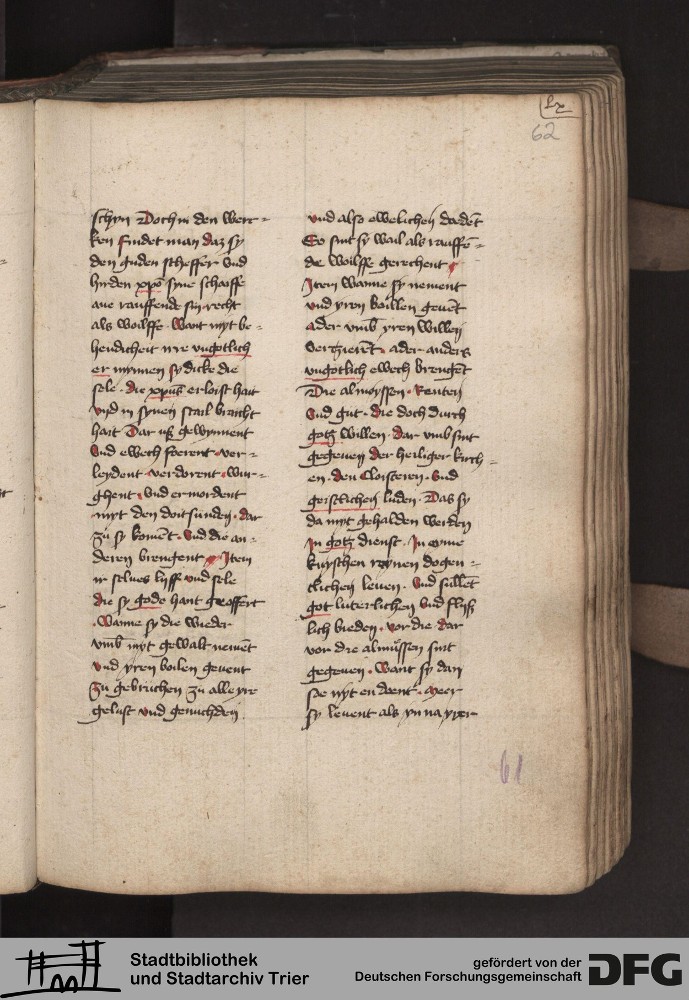 schyn Doch in den werc=
ken findet man daz sy
den guden scheffer Vnd
hirden xpō syne schaiffe
ane rauffende sin recht
als woilffe. Want myt be=
hendicheit
er mynnen sy dicke die
sele. die xpūs erloist hait
vnd in synen stail bracht
hait Dar uß gewynnent
Vnd ewech foerent. ver=
leydent. verdorent. wur=
ghent. Vnd ermordent
myt den doitsunden. dar
zů sy komēt. Vnd die an=
deren brengent Item
ir selues lyff vnd sele
die sy gode hant geoffert
. Wanne sy die wieder
vmb̄ myt gewalt nemēt
vnd yren boilen geuent
zů gebruchen zů alle yre
gelust vnd genuchden
vnd also ewelichen doedēt
Eo sint sy wail als rauffē=
de woilffe gerechent
Item wanne sy nement
vnd yren boillen geuēt
ader vmb̄ yren willen
verzierēt. ader anders
vngotlich ewech brengēt
Die almoyssen. Renten
Vnd gut. die doch durch
gotz willen. dar vmb sint
gegeuen der heiliger kirch=
en. den Cloisteren. Vnd
geistlichen luden. Das sy
da myt gehalden werden
In gotz dienst. In eyme
kuyschen reynen dogen=
tlichen leuen. Vnd sullēt
got luterlichen Vnd flyß
lich bieden. vor die. dar
vor die almůssen sint
gegeuen. Want sy dan
des nyt en doent. Meer
sy leuent als yn na yrer
62
61
Stadtbibliothek
und Stadtarchiv Trier
gefördert von der
Deutschen Forschungsgemeinschaft
DFG